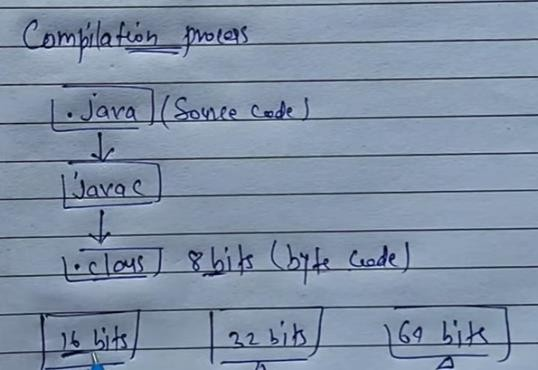 Compilation process
.java (Source code)
javac
.class 8 bits (byte code)
16 bits 32 bits 64 bits